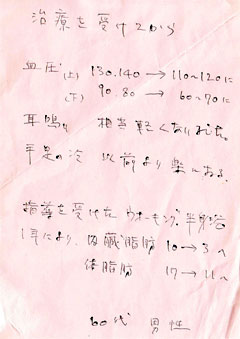 治療を受けてから
血圧(上) 130.140 → 110~120に
(下) 90.80 → 60~70に
耳鳴り 相当軽くなりました。
手足の冷 以前より楽になる。
指導を受けた ウォーキング、半身浴
1年により、内臓脂肪 10→3へ
体脂肪 17→11へ
60代 男性